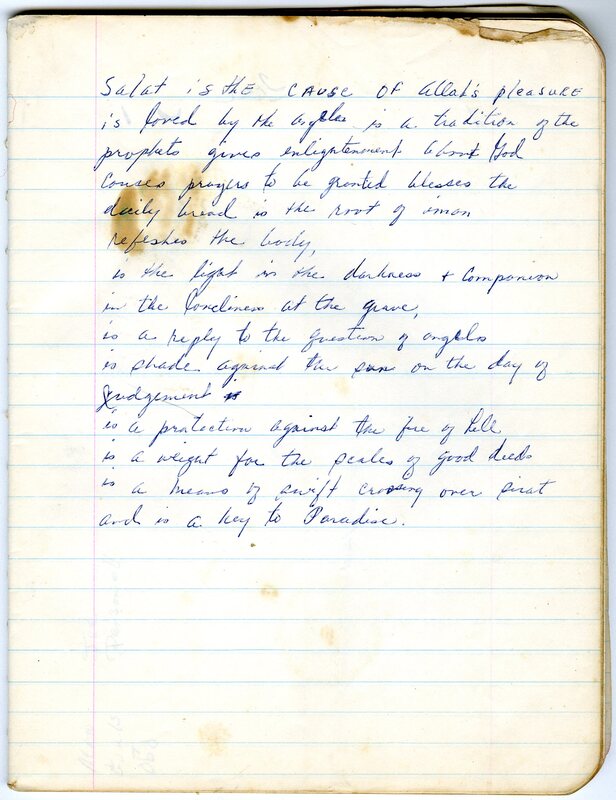 Salat is the CAUSE OF Allah's pleasure
is loved by the angels is a tradition of the
prophets gives enlightenment about God
Causes prayers to be granted blesses the
daily bread is the root of iman
refeshes the body,
is the light in the darkness + Companion
in the loneliness at the grave,
is a reply to the question of angels
is shade against the sun on the day of
Judgement
is a protection against the fire of hell
is a weight for the scales of good deeds
is a means of swift crossing over sirat
and is a key to Paradise.